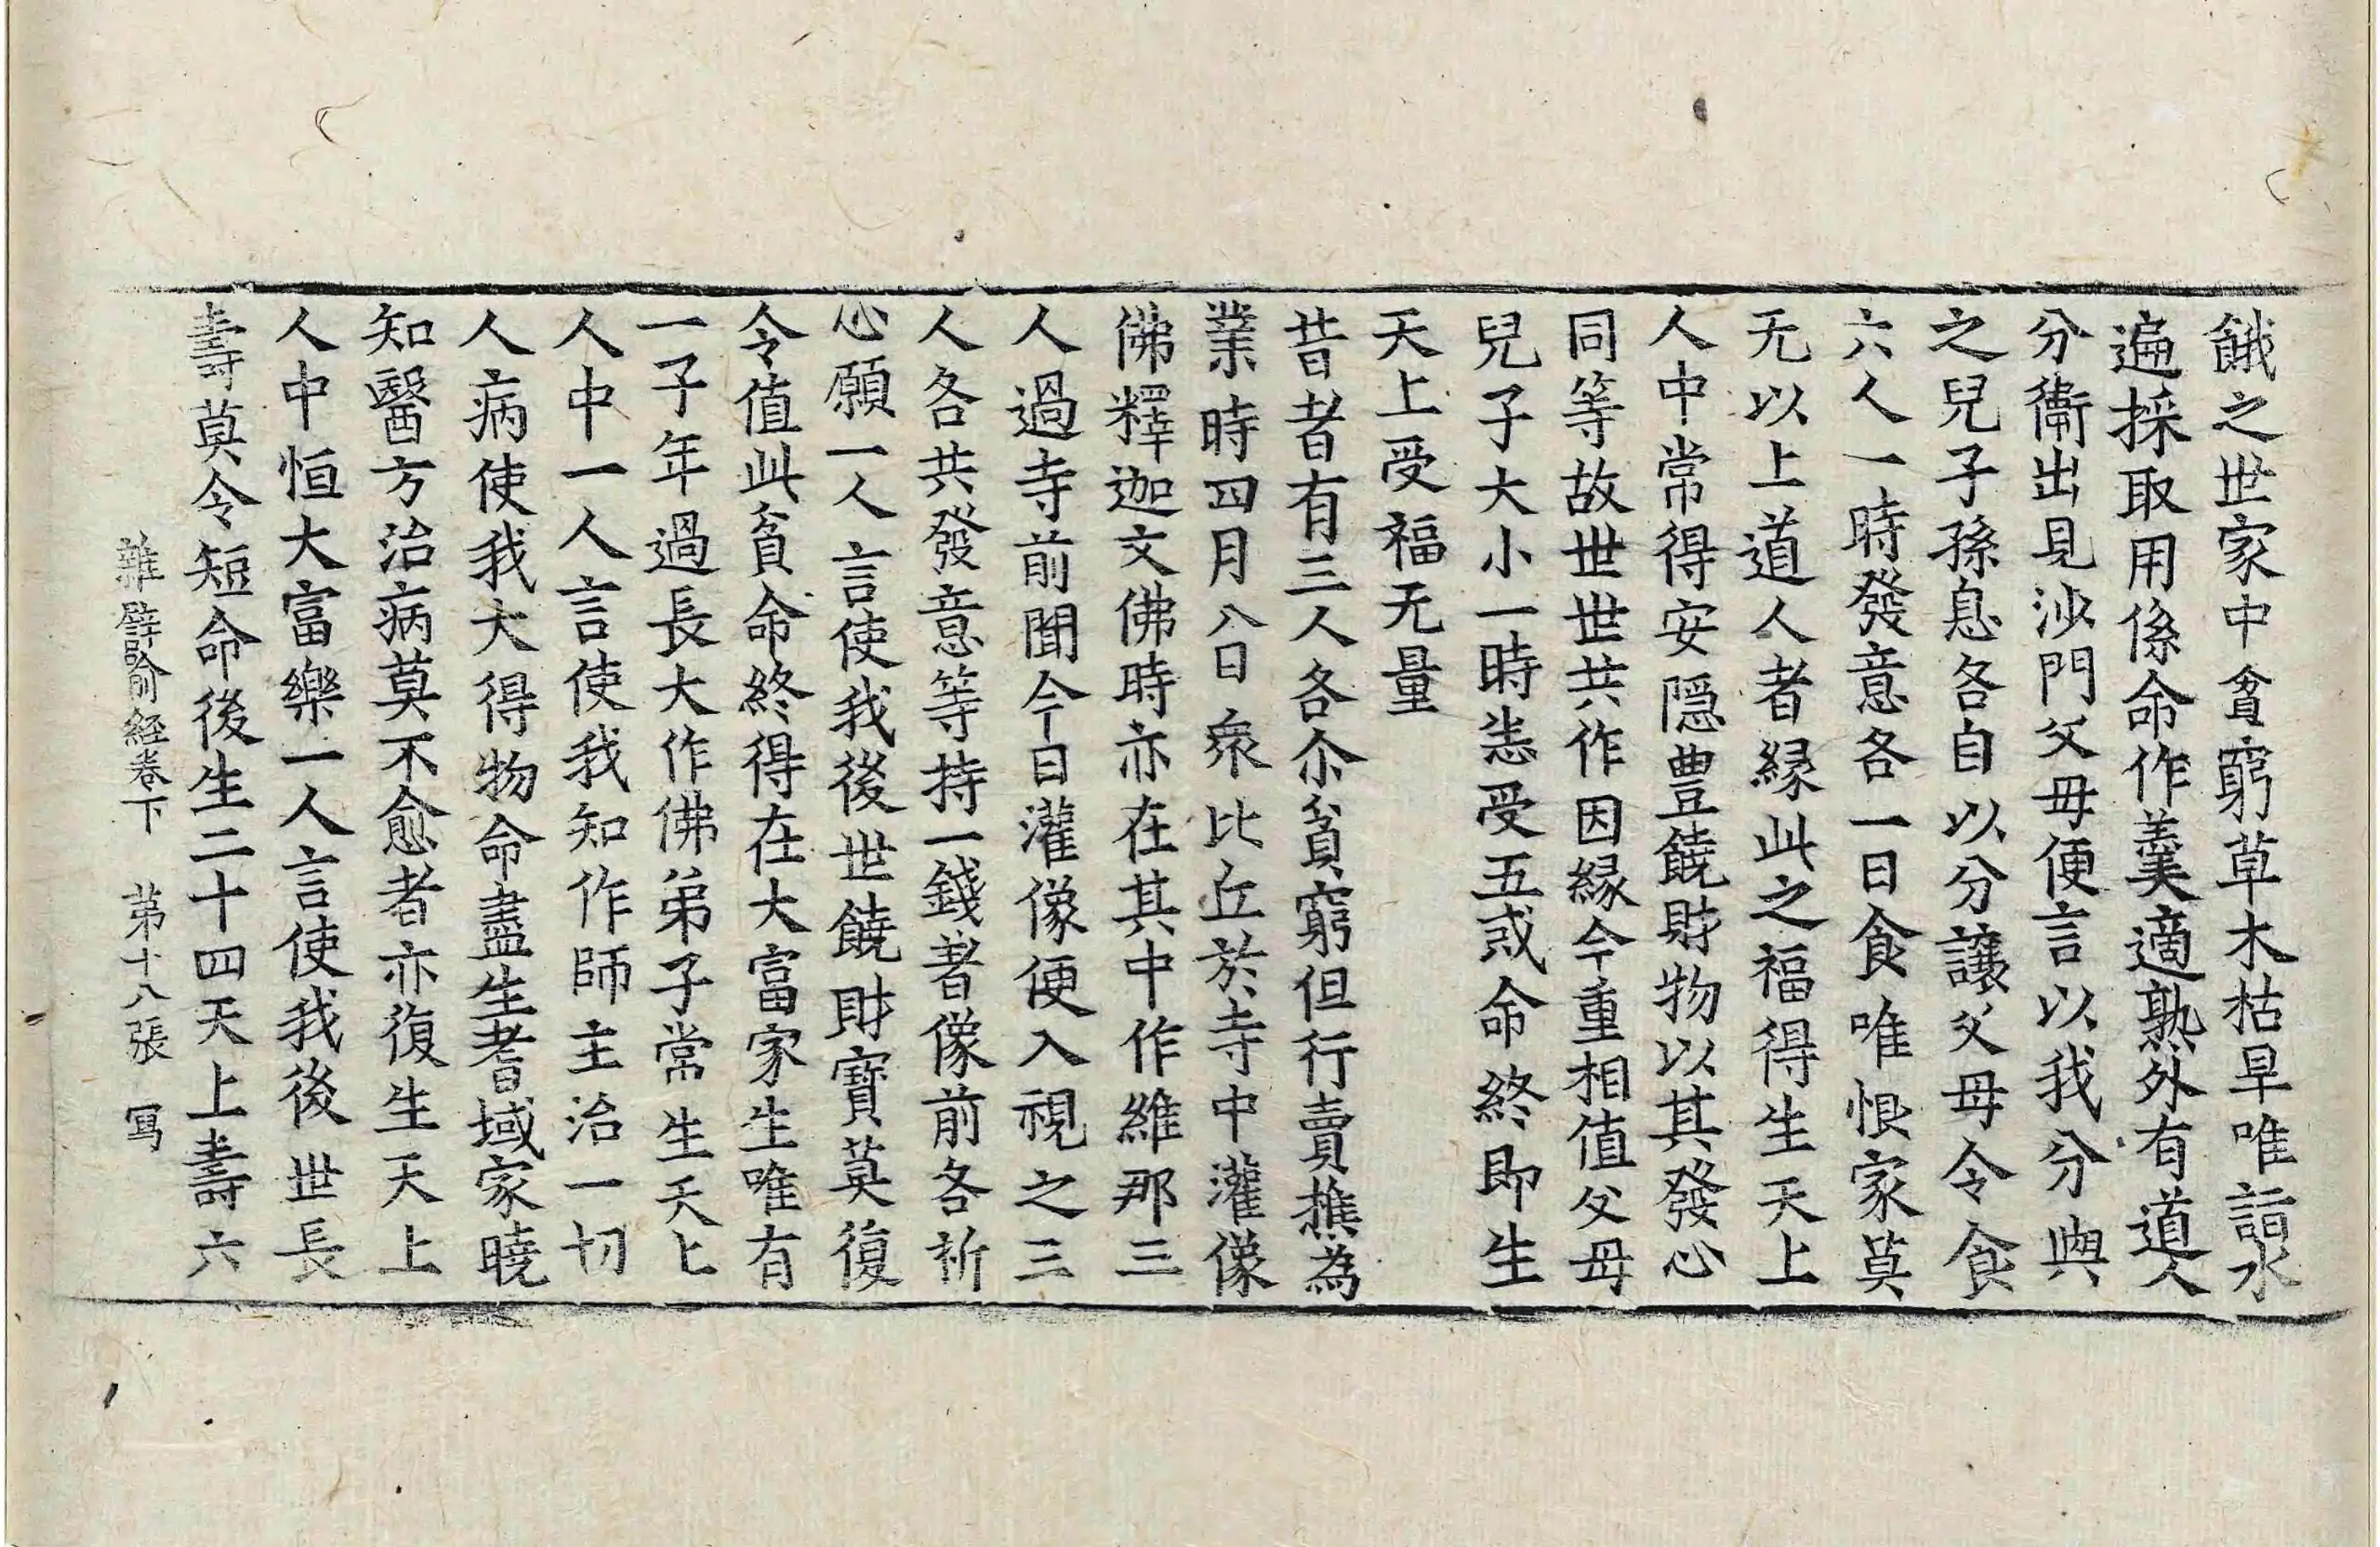 餓之世家中貧窮草木枯旱唯詣水
遍採取用係命作羹適熟外有道人
分衞出見沙門父母便言以我分與
之兒子孫息各自以分讓父母令食
六人一時發意各一日食唯恨家莫
无以上道人者緣此之福得生天上
人中常得安隱豊饒財物以其發心
同等故世世共作因緣今重相值父母
兒子大小一時恙受五戒命終即生
天上受福无量
昔者有三人各尒貧窮但行賣樵為
業時四月八日衆比丘於寺中灌像
佛釋迦文佛時亦在其中作維那三
人過寺前聞今日灌像便入視之三
人各共發意等持一錢著像前各祈
心願一人言使我後世饒財寶莫復
令值此貧命終得在大富家生唯有
一子年過長大作佛弟子常生天上
人中一人言使我知作師主治一切
人病使我大得物命盡生耆域家曉
知醫方治病莫不愈者亦復生天上
人中恒大富樂一人言使我後世長
壽莫令短命後生二十四天上壽六
雜譬喻經卷下　第十八張　寫